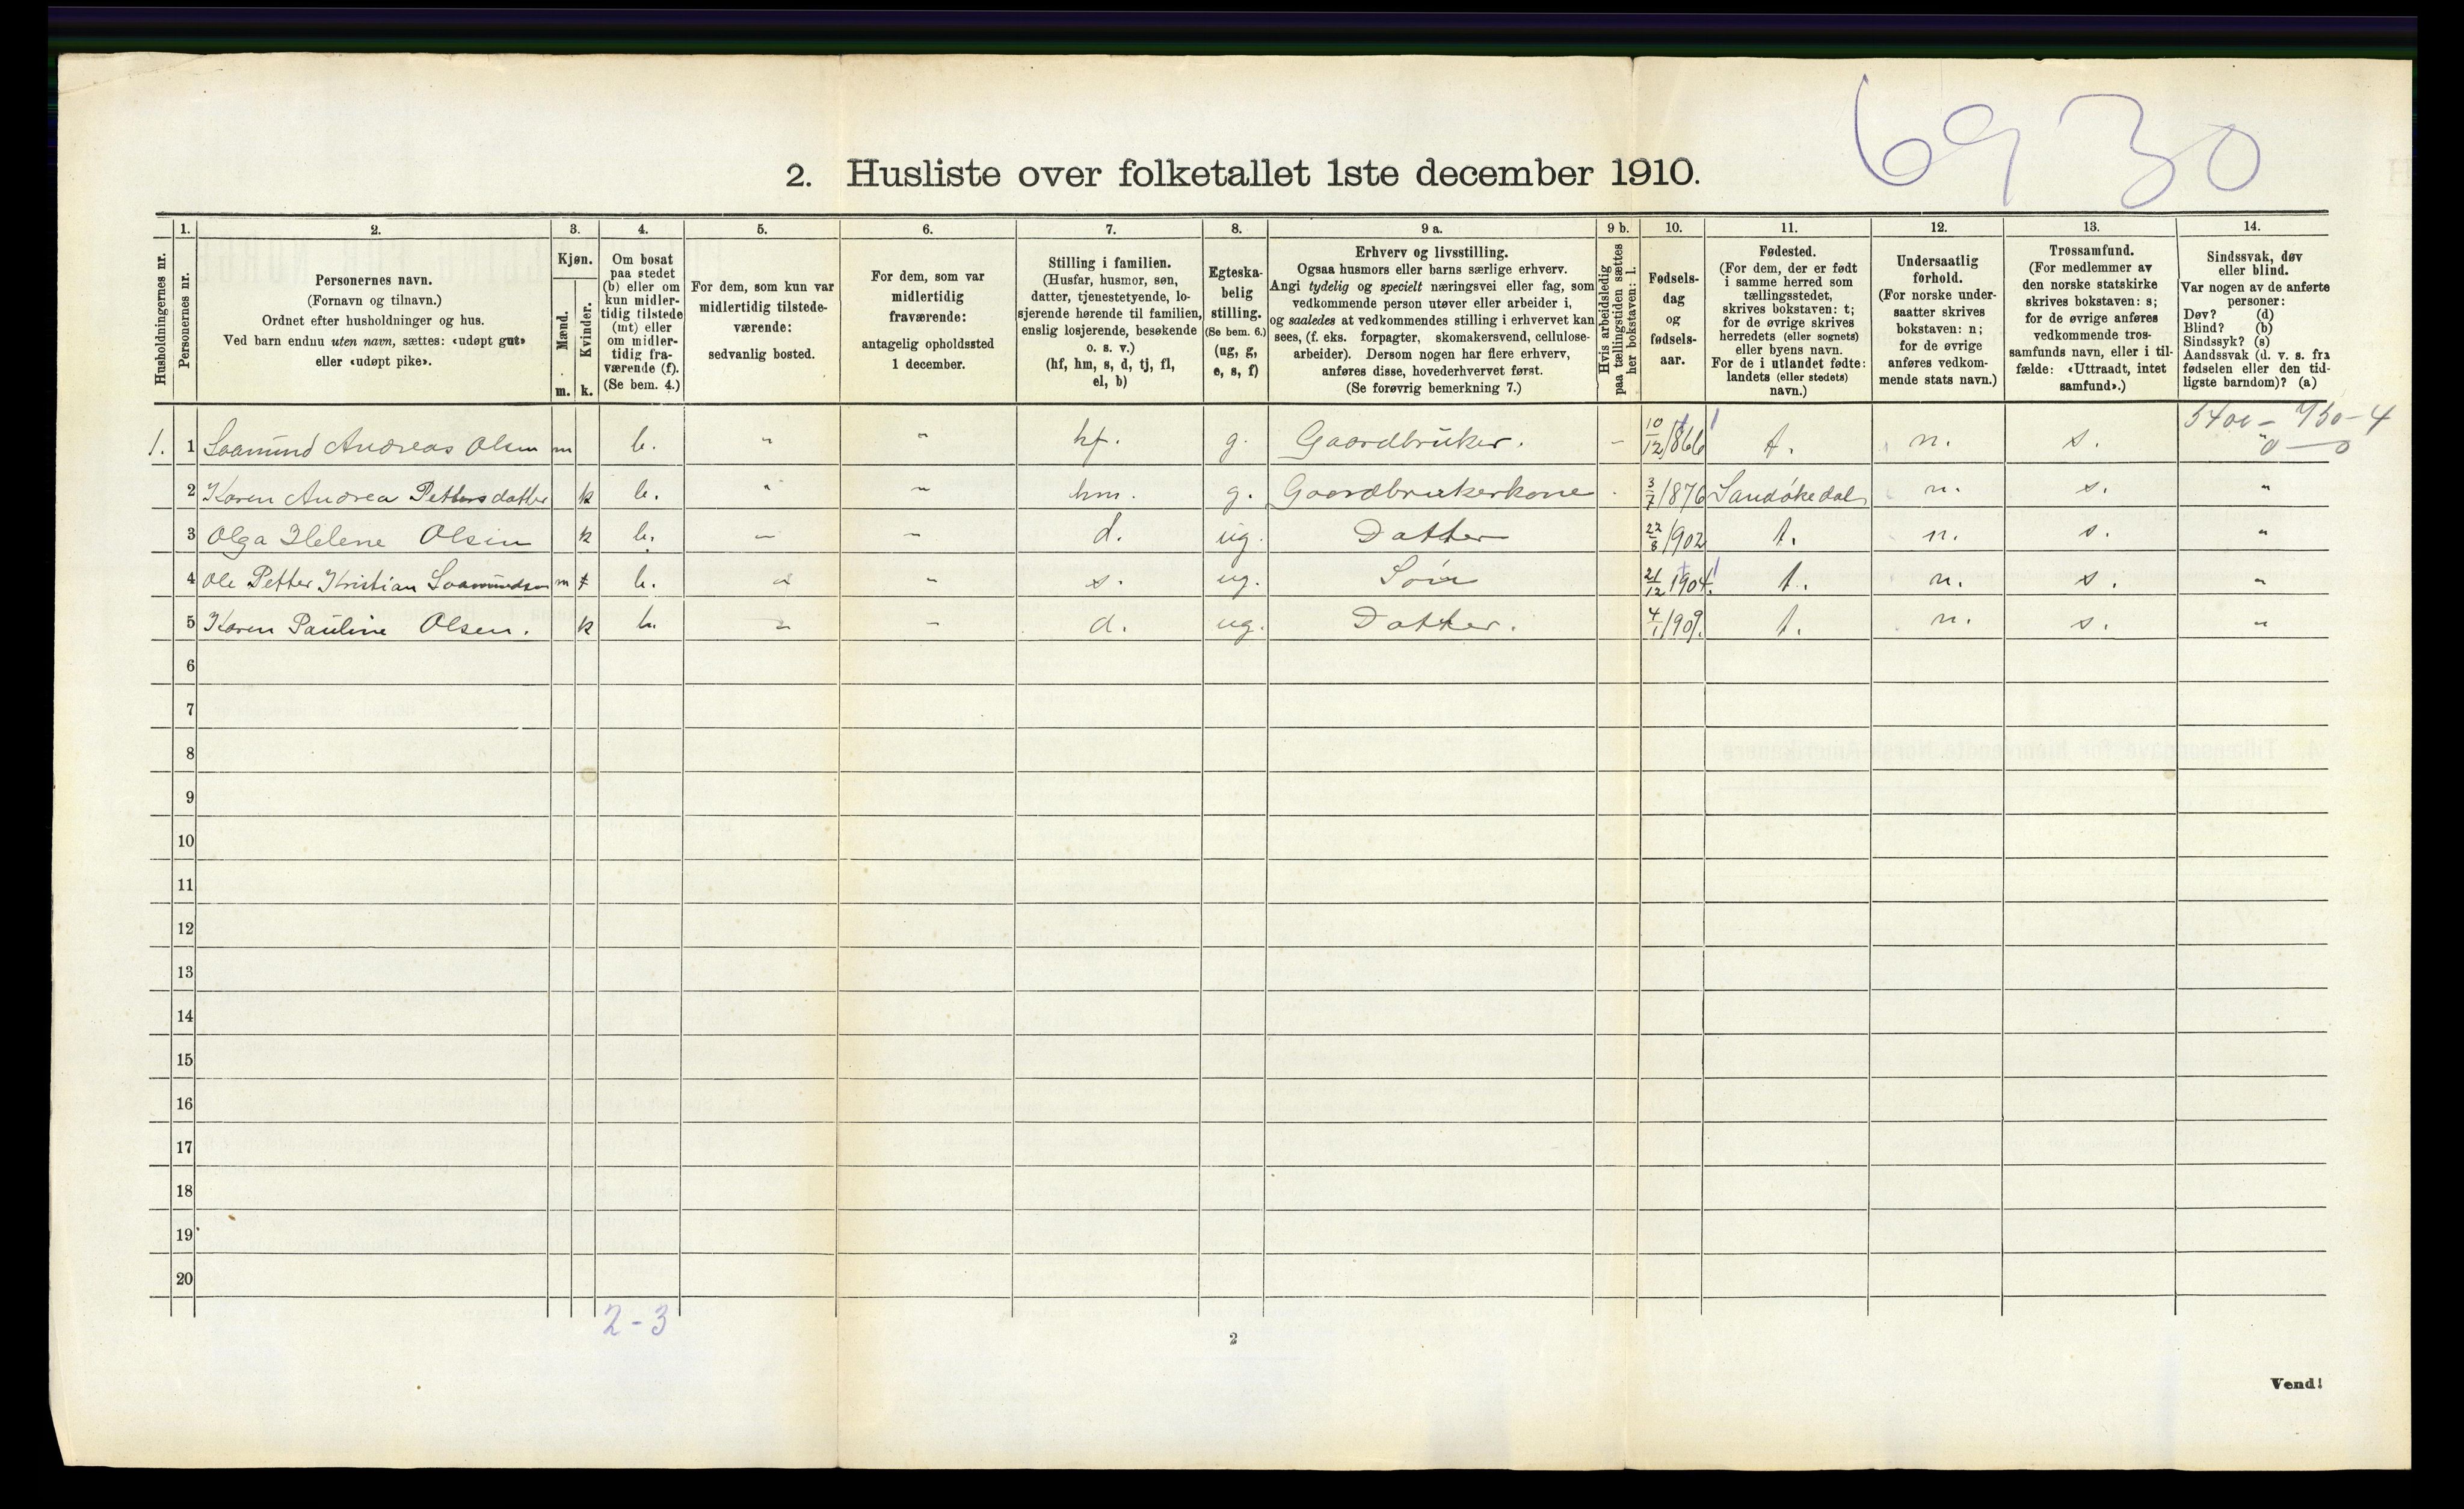 6930
2. Husliste over folketallet 1ste december 1910.
Husholdningernes nr.
1.
Personernes nr.
2.
Personernes navn.
(Fornavn og tilnavn.)
Ordnet efter husholdninger og hus.
Ved barn endnu uten navn, sættes: «udøpt gut»
eller «udøpt pike».
3.
Kjøn.
Mænd.
Kvinder.
m. k.
4.
Om bosat
paa stedet
(b) eller om
kun midler-
tidig tilstede
(mt) eller
om midler-
tidig fra-
værende (f).
(Se bem. 4.)
5.
For dem, som kun var
midlertidig tilstede-
værende:
sedvanlig bosted.
6.
For dem, som var
midlertidig
fraværende:
antagelig opholdssted
1 december.
7.
Stilling i familien.
(Husfar, husmor, søn,
datter, tjenestetyende, lo-
sjerende hørende til familien,
enslig losjerende, besøkende
o. s. v.)
(hf, hm, s, d, tj, fl,
el, b)
8.
Egteska-
belig
stilling.
(Se bem. 6.)
(ug, g,
e, s, f)
9 a.
Erhverv og livsstilling.
Ogsaa husmors eller barns særlige erhverv.
Angi tydelig og specielt næringsvei eller fag, som
vedkommende person utøver eller arbeider i,
og saaledes at vedkommendes stilling i erhvervet kan
sees, (f. eks. forpagter, skomakersvend, cellulose-
arbeider). Dersom nogen har flere erhverv,
anføres disse, hovederhvervet først.
(Se forøvrig bemerkning 7.)
9 b.
Hvis arbeidsledig
paa tællingstiden sættes
her bokstaven: l.
10.
Fødsels-
dag
og
fødsels-
aar.
11.
Fødested.
(For dem, der er født
i samme herred som
tællingsstedet,
skrives bokstaven: t;
for de øvrige skrives
herredets (eller sognets)
eller byens navn.
For de i utlandet fødte:
landets (eller stedets)
navn.)
12.
Undersaatlig
forhold.
(For norske under-
saatter skrives
bokstaven: n;
for de øvrige
anføres vedkom-
mende stats navn.)
13.
Trossamfund.
(For medlemmer av
den norske statskirke
skrives bokstaven: s;
for de øvrige anføres
vedkommende tros-
samfunds navn, eller i til-
fælde: «Uttraadt, intet
samfund».)
14.
Sindssvak, døv
eller blind.
Var nogen av de anførte
personer:
Døv? (d)
Blind? (b)
Sindssyk? (s)
Aandssvak (d. v. s. fra
fødselen eller den tid-
ligste barndom)? (a)
5400 - 930 - 4
0 — 0
1. 1 Saamund Andreas Olsen m b. " " hf. g. Gaardbruker. - 10/12 1866 t. n. s. "
2 Karen Andrea Pettersdatter k b. " " hm. g. Gaardbrukerkone 3/7 1876 Sandøkedal n. s. "
3 Olga Helene Olsen k b. " " d. ug. Datter 22/8 1902 t. n. s. "
4 Ole Petter Kristian Saamundsen m b. " " s. ug. Søn 21/12 1904. t. n. s. "
5 Karen Pauline Olsen. k b. " " d. ug. Datter. 4/1 1909. t. n. s. "
6
7
8
9
10
11
12
13
14
15
16
17
18
19
20
2-3
2
Vend!